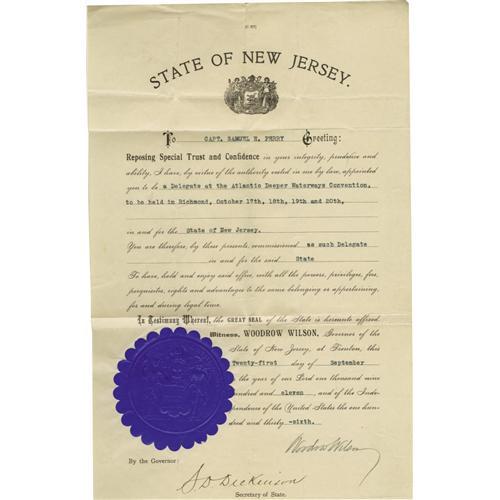 STATE OF NEW JERSEY.
To CAPT. SAMUEL E. PERRY Greeting:
Reposing Special Trust and Confidence in your integrity, prudence and
ability, I have, by virtue of the authority vested in me by law, appointed
you to be a Delegate at the Atlantic Deeper Waterways Convention,
to be held in Richmond, October 17th, 18th, 19th and 20th,
in and for the State of New Jersey.
You are therefore, by these presents, commissioned as such Delegate
in and for the said State
To have, hold and enjoy said office, with all the powers, privileges, fees,
perquisites, rights and advantages to the same belonging or appertaining,
for and during legal time.
In Testimony Whereof, the GREAT SEAL of the State is hereunto affixed.
Witness, WOODROW WILSON, Governor of the
State of New Jersey, at Trenton, this
Twenty-first day of September
the year of our Lord one thousand nine
hundred and eleven and of the Inde-
pendence of the United States the one hun-
dred and thirty -sixth.
Woodrow Wilson
By the Governor:
S D Dickinson
Secretary of State.